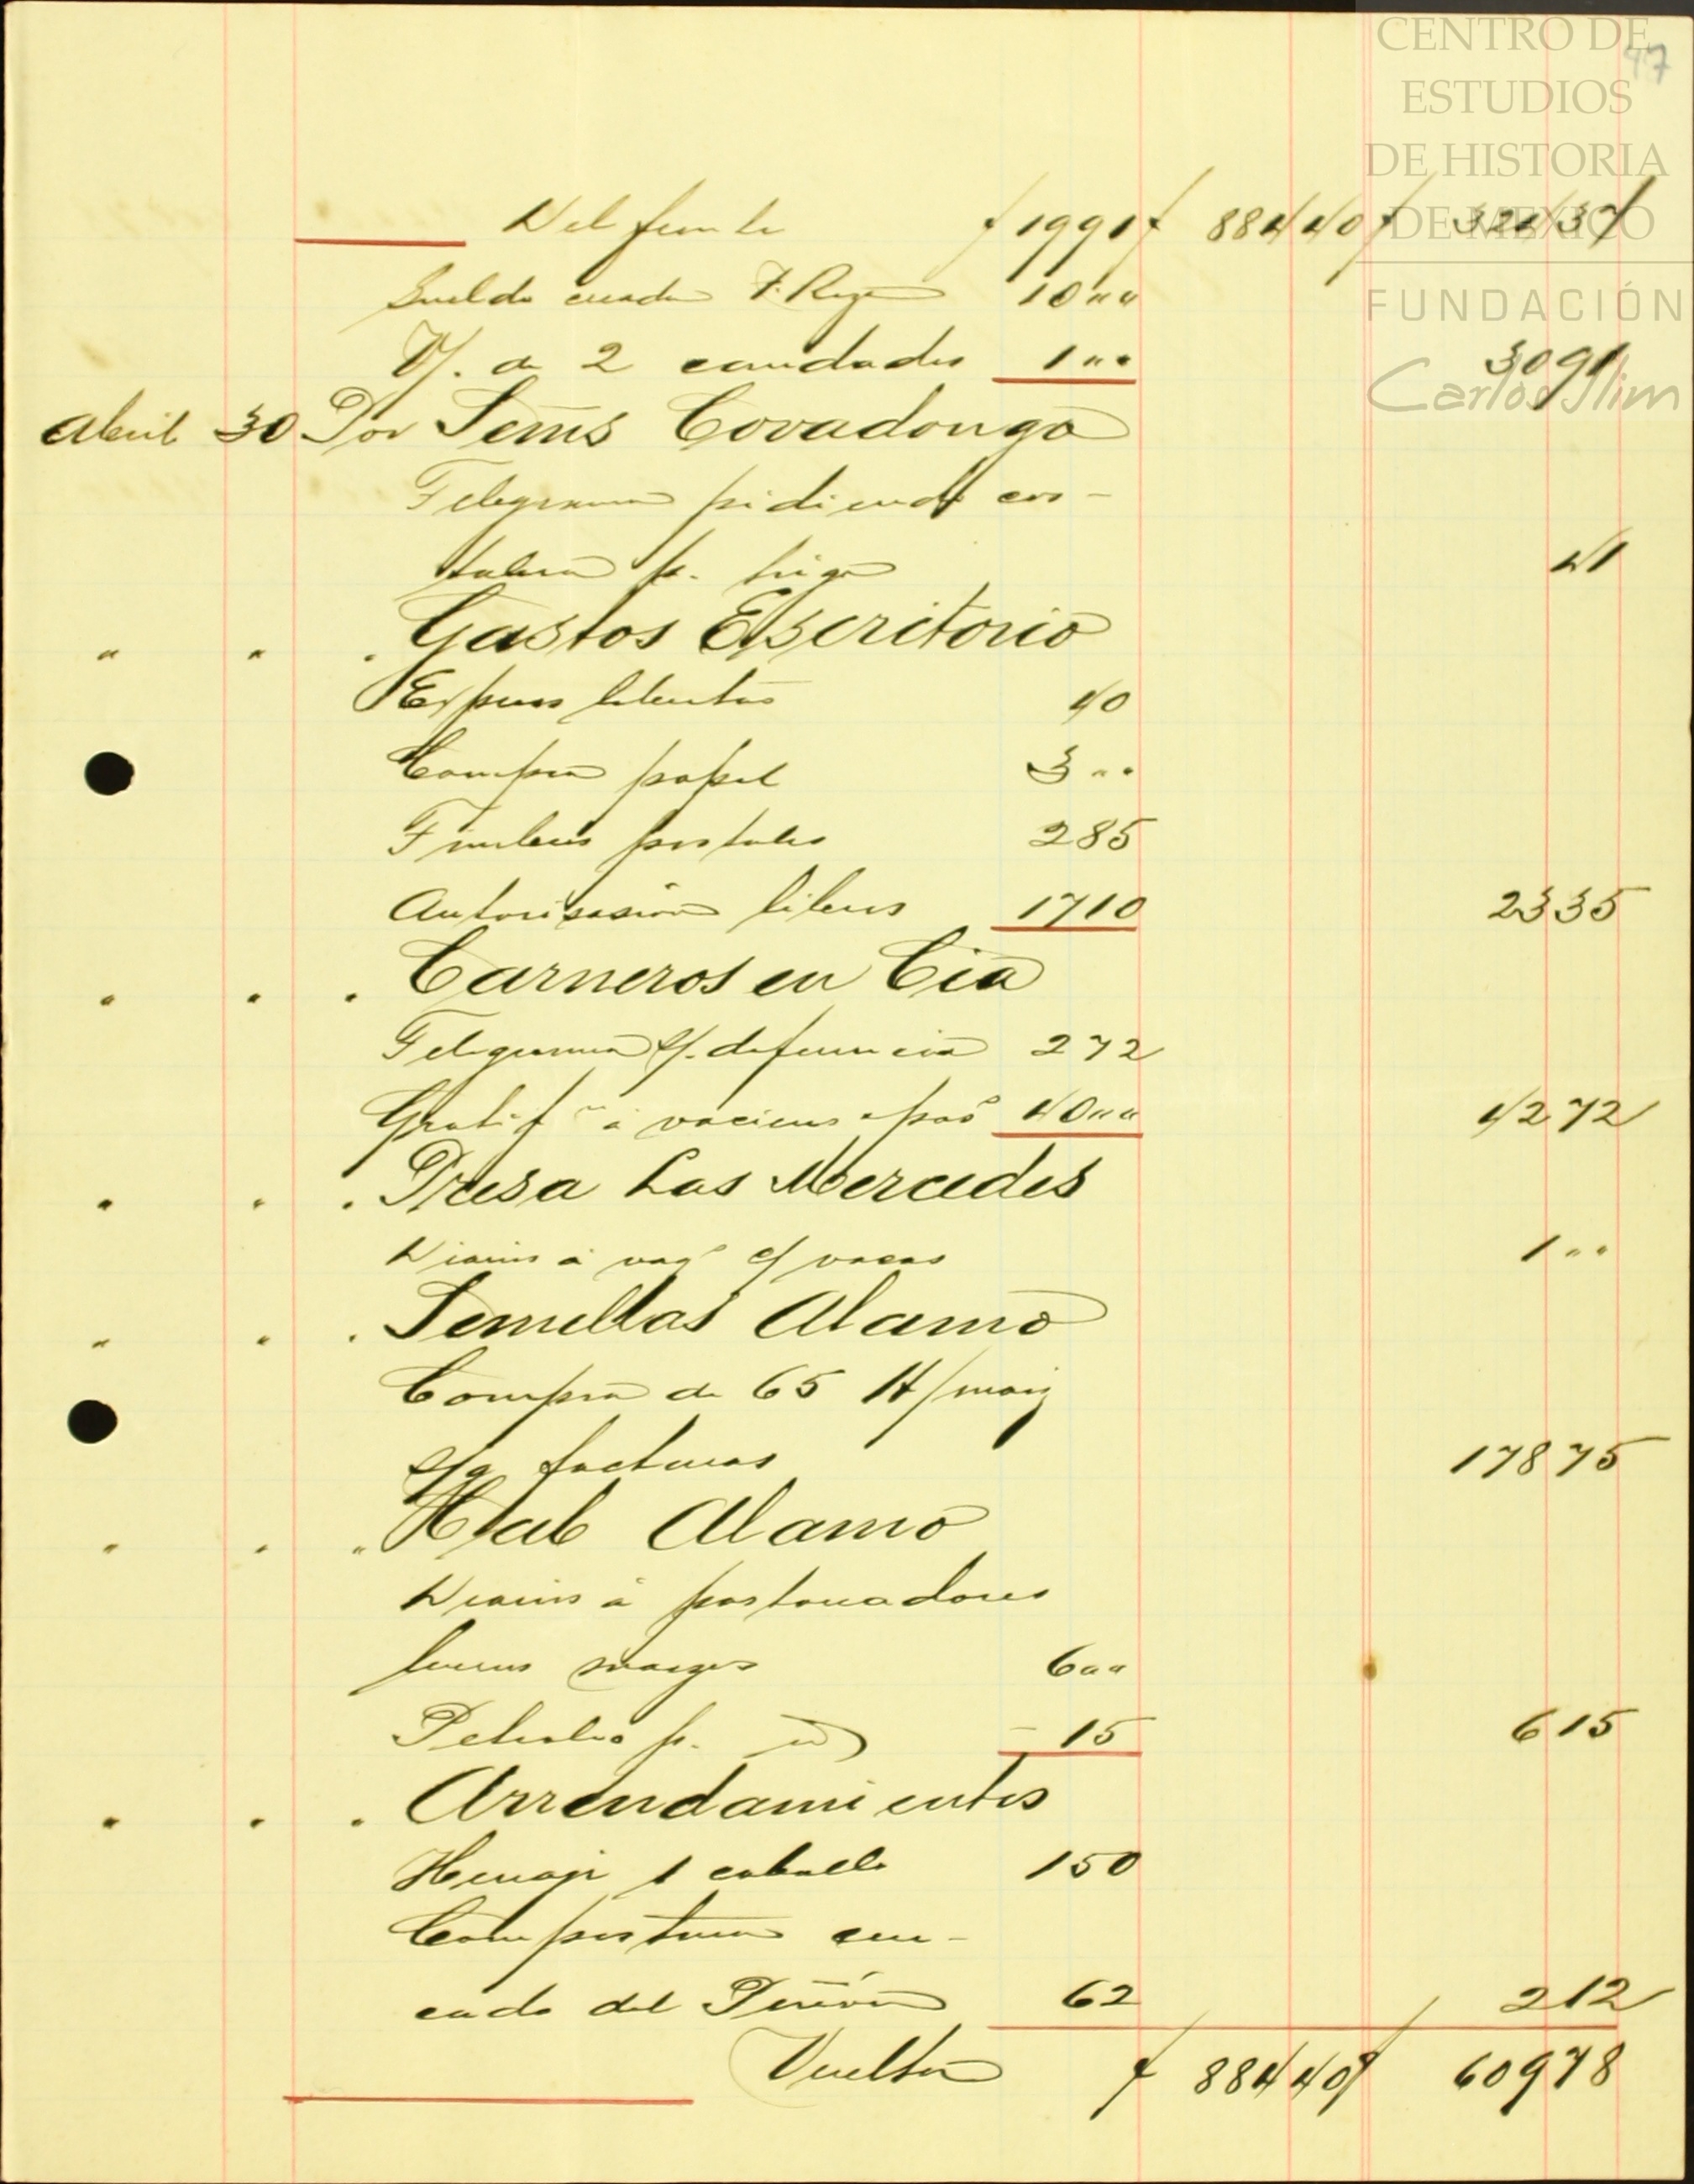 CENTRO DE
ESTUDIOS
DE HISTORIA
DE MEXICO
FUNDACIÓN
Carlos Slim
47
Del frente $ 1991 $ 88440 $ 32437
Sueldo criada F. 10 " "
V/. de 2 candados 1 " " 3091
Abril 30 Por Sem's Covadonga
Telegrama pidiendo cos-
talera p. trigo 41
" " . Gastos Escritorio
Expreso 40
Compra papel 3 " "
Timbres postales 285
Autorisasión libros 1710 2335
" " . Carneros en Cia
Telegrama s/. defuncion 272
Gratif à 40 " " 4272
" " . Presa Las Mercedes
Diarios à c/ vacas 1 " "
" " . Semillas Alamo
Compra de 65 H/ maiz
s/g facturas 17875
" " " Hab Alamo
Diarios à pastoreadores
600
Petroleo p. id 15 615
" " . Arrendamientos
Herraje 1 caballo 150
Compostura cer-
cado del Peñón 62 212
Vuelta $ 88440 $ 60978